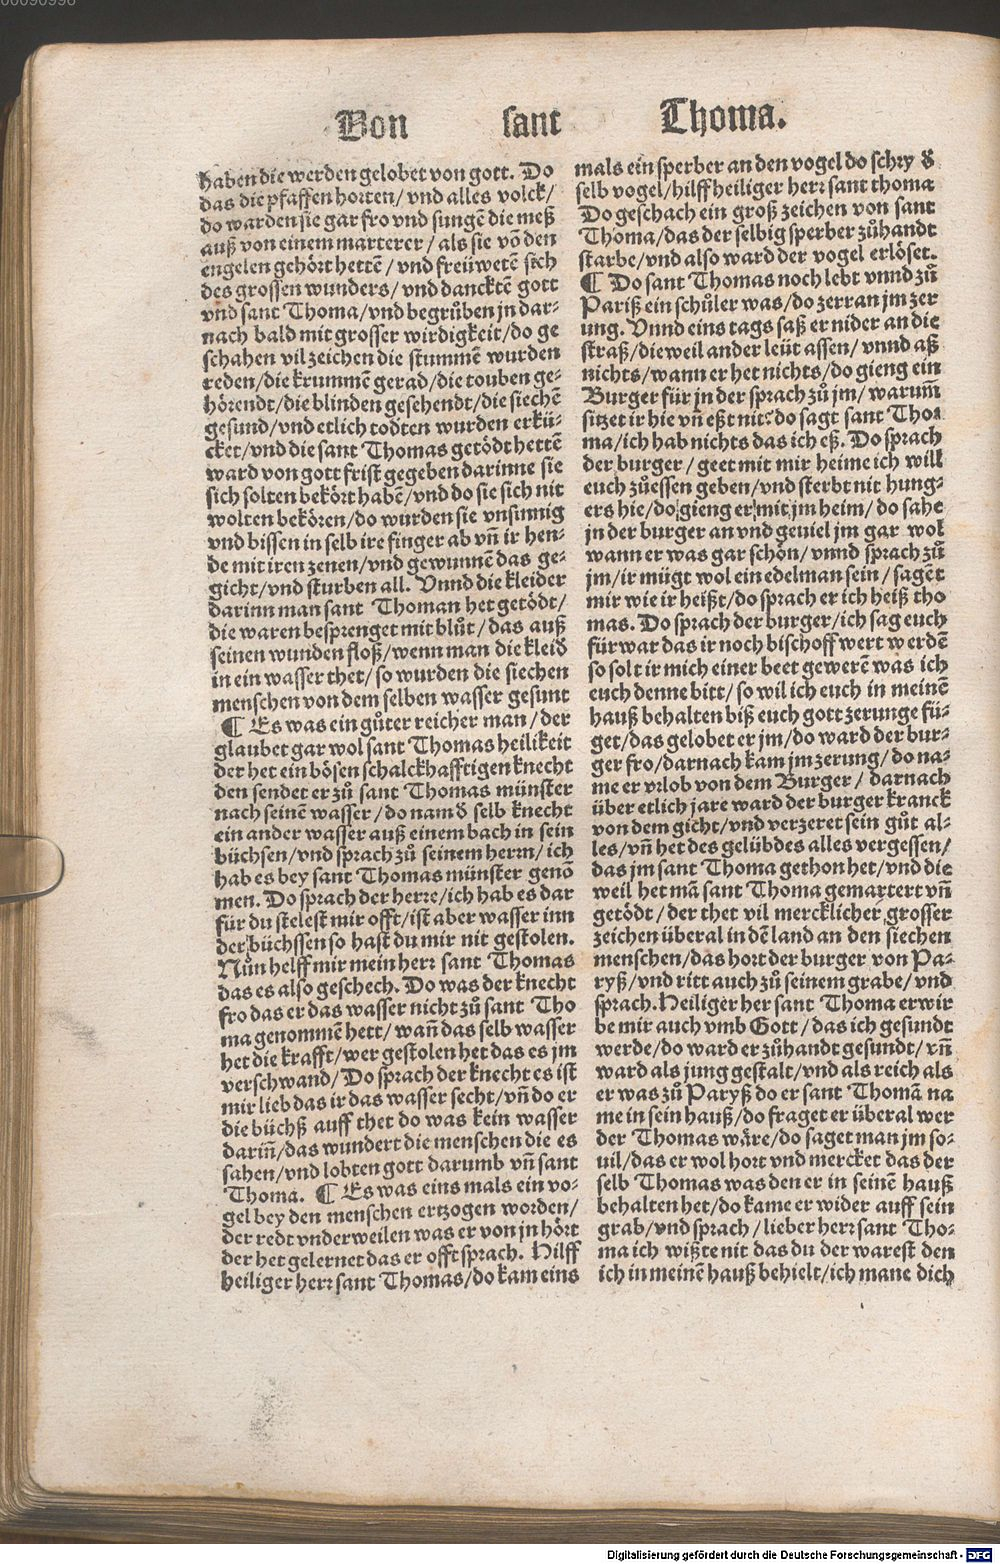 00090996
Von sant Thoma.
haben die werden gelobet von gott. Do
das die pfaffen horten/ vnd alles volck/
do warden sie gar fro vnd sungē die meß
auß von einem marterer/ als sie vō den
engelen gehört hettē/ vnd freüwetē sich
des grossen wunders/ vnd dancktē gott
vnd sant Thoma/ vnd begrůben jn dar⸗
nach bald mit grosser wirdigkeit/ do ge
schahen vil zeichen die stummē wurden
reden/ die krummē gerad/ die touben ge⸗
hörendt/ die blinden gesehendt/ die siechē
gesund/ vnd etlich todten wurden erkü⸗
cket/ vnd die sant Thomas getödt hettē
ward von gott frist gegeben darinne sie
sich solten bekört habē/ vnd do sie sich nit
wolten bekören/ do wurden sie vnsinnig
vnd bissen in selb ire finger ab vñ ir hen⸗
de mit iren zenen/ vnd gewunnē das ge⸗
gicht/ vnd sturben all. Vnnd die kleider
darinn man sant Thoman het getödt/
die waren besprenget mit blůt/ das auß
seinen wunden floß/ wenn man die kleid̕
in ein wasser thet/ so wurden die siechen
menschen von dem selben wasser gesunt
¶ Es was ein gůter reicher man/ der
glaubet gar wol sant Thomas heilikeit
der het ein bösen schalckhafftigen knecht
den sendet er zů sant Thomas münster
nach seinē wasser/ do nam d̕ selb knecht
ein ander wasser auß einem bach in sein
büchsen/ vnd sprach zů seinem herrn/ ich
hab es bey sant Thomas münster genō
men. Do sprach der herre/ ich hab es dar
für du stelest mir offt/ ist aber wasser inn
der büchssen so hast du mir nit gestolen.
Nůn helff mir mein herr sant Thomas
das es also geschech. Do was der knecht
fro das er das wasser nicht zů sant Tho
ma genommē hett/ wañ das selb wasser
het die krafft/ wer gestolen het das es jm
verschwand/ Do sprach der knecht es ist
mir lieb das ir das wasser secht/ vñ do er
die büchß auff thet do was kein wasser
dariñ/ das wundert die menschen die es
sahen/ vnd lobten gott darumb vñ sant
Thoma. ¶ Es was eins mals ein vo⸗
gel bey den menschen ertzogen worden/
der redt vnderweilen was er von jn hört
der het gelernet das er offt sprach. Hilff
heiliger herr sant Thomas/ do kam eins
mals ein sperber an den vogel do schry d̕
selb vogel/ hilff heiliger herr sant thoma
Do geschach ein groß zeichen von sant
Thoma/ das der selbig sperber zůhandt
starbe/ vnd also ward der vogel erlöset.
¶ Do sant Thomas noch lebt vnnd zů
Pariß ein schůler was/ do zerran jm zer
ung. Vnnd eins tags saß er nider an die
straß/ die weil ander leüt assen/ vnnd aß
nichts/ wann er het nichts/ do gieng ein
Burger für jn der sprach zů jm/ warum̄
sitzet ir hie vñ eßt nit: do sagt sant Tho⸗
ma/ ich hab nichts das ich eß. Do sprach
der burger/ geet mit mir heime ich will
euch zůessen geben/ vnd sterbt nit hung⸗
ers hie/ do gieng er mit jm heim/ do sahe
jn der burger an vnd geuiel jm gar wol
wann er was gar schön/ vnnd sprach zů
jm/ ir mügt wol ein edelman sein/ sagēt
mir wie ir heißt/ do sprach er ich heiß tho
mas. Do sprach der burger/ ich sag euch
fürwar das ir noch bischoff wert werdē
so solt ir mich einer beet gewerē was ich
euch denne bitt/ so wil ich euch in meinē
hauß behalten biß euch gott zerunge fü⸗
get/ das gelobet er jm/ do ward der bur⸗
ger fro/ darnach kam jm zerung/ do na⸗
me er vrlob von dem Burger/ darnach
über etlich jare ward der burger kranck
von dem gicht/ vnd verzeret sein gůt al⸗
les/ vñ het des gelübdes alles vergessen/
das jm sant Thoma gethon het/ vnd die
weil het mā sant Thoma gemartert vñ
getödt/ der thet vil mercklicher grosser
zeichen überal in dē land an den siechen
menschen/ das hort der burger von Pa⸗
ryß/ vnd ritt auch zů seinem grabe/ vnd
sprach. Heiliger her sant Thoma erwir
be mir auch vmb Gott/ das ich gesundt
werde/ do ward er zůhandt gesundt/ vñ
ward als jung gestalt/ vnd als reich als
er was zů Paryß do er sant Thomā na
me in sein hauß/ do fraget er überal wer
der Thomas wäre/ do saget man jm so⸗
uil/ das er wol hort vnd mercket das der
selb Thomas was den er in seinē hauß
behalten het/ do kame er wider auff sein
grab/ vnd sprach/ lieber herr sant Tho⸗
ma ich wißte nit das du der warest den
ich in meinē hauß behielt/ ich mane dich
Digitalisierung gefördert durch die Deutsche Forschungsgemeinschaft - DFG